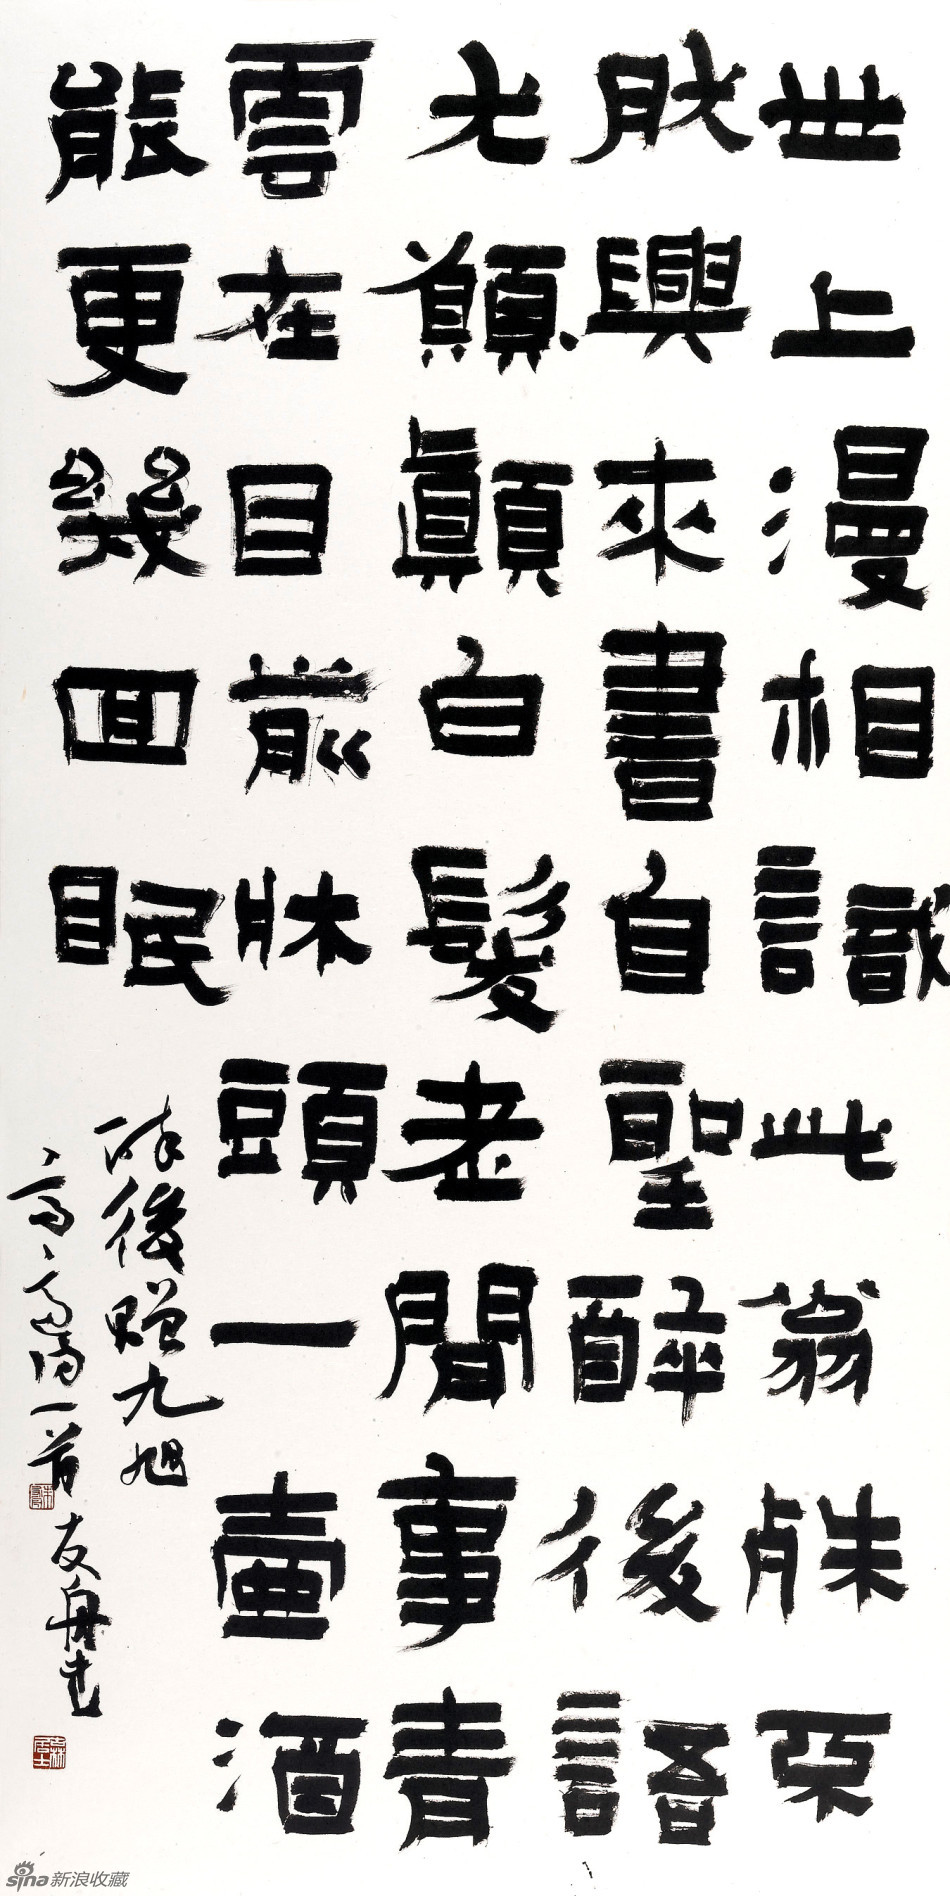 世上漫相識此翁殊不
肰興來書自聖醉後語
尤顛顛白髮老間事青
雲在目前牀頭一壺酒
能更幾回眠
醉後贈九旭
高適詩一首 友舟書
sina新浪收藏